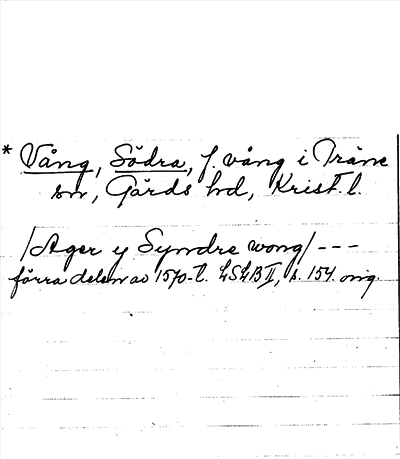 * Vång, Södra, f. vång i Träne
sn, Gärds hd, Krist. l.
/Ager y Syndre wong/ ---
förra delen av 1570-t. LSLB II, s. 154. orig.